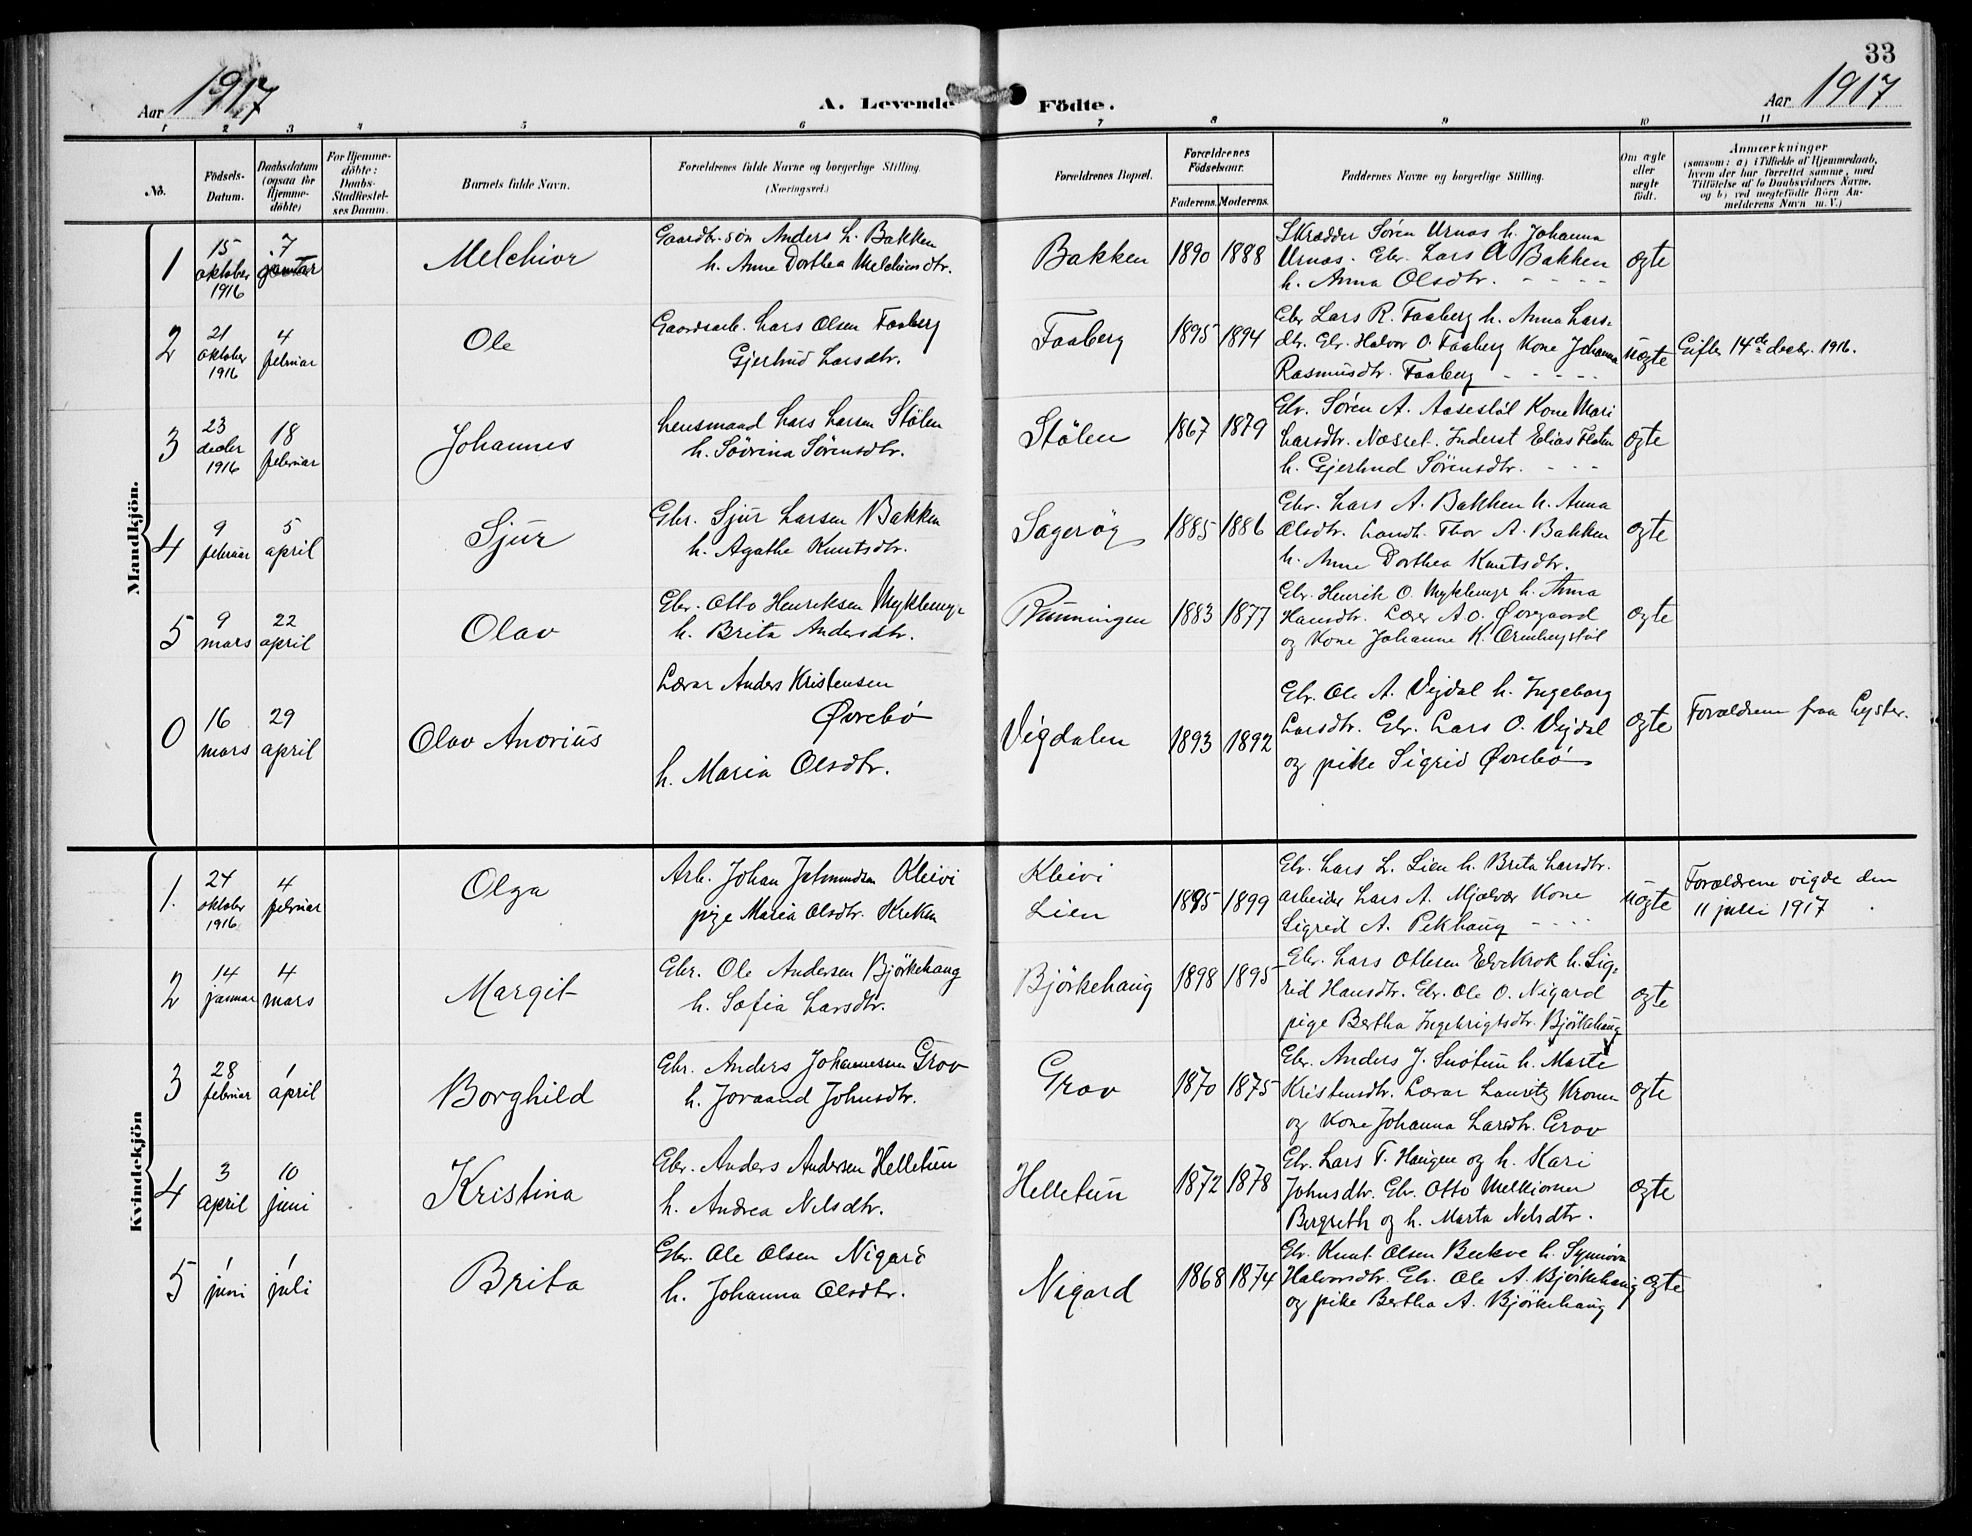 33
Aar 1917
A. Levende Födte.
Aar 1917
1 2 3 4 5 6 7 8 9 10 11
No.
Födsels-Datum.
Daabsdatum (ogsaa for Hjemme-döbte)
For Hjemme-döbte: Daabs-Stadfæstel-ses Datum.
Barnets fulde Navn.
Forældrenes fulde Navne og borgerlige Stilling.
(Næringsvei.)
Forældrenes Bopæl.
Forældrenes Födselsaar.
Faderens. Moderens.
Faddernes Navne og borgerlige Stilling.
Om ægte eller uægte födt.
Anmærkninger
(saasom: a) i Tilfælde af Hjemmedaab,
hvem der har forrettet samme, med
Tilföielse af to Daabsvidners Navne,
og b) ved uægtefödte Börn An-
melderens Navn m. V.)
Mandkjön.
1
15 oktober 1916
7 januar
Melchior
Gaardbr.søn Anders L. Bakken
h. Anne Dorthea Melchiorsdtr.
Bakken
1890 1888
Skrædder Søren Urnes h. Johanna
Urnes. Gbr. Lars A Bakken
h. Anna Olsdtr.
ægte
2
21 oktober 1916
4 februar
Ole
Gaardsarb. Lars Olsen Faaberg
Gjertrud Larsdtr.
Faaberg
1895 1894
Gbr Lars R. Faaberg h. Anna Lars-
dtr. Gbr. Halvor O. Faaberg Kone Johanna
Rasmusdtr. Faaberg
uægte
Gifter 14de decbr. 1916.
3
23 decbr 1916
18 februar
Johannes
Lensmand Lars Larsen Stölen
h. Sövrina Sörensdtr.
Stölen
1867 1879
Gbr. Sören A. Aasestöl Kone Mari
Larsdtr. Næsset. Inderst Elias Flaten
h. Gjertrud Sörensdtr.
ægte
4
9 februar
5 april
Sjur
Gbr. Sjur Larsen Bakken
h. Agathe Knutsdtr.
Sagerøy
1885 1886
Gbr. Lars A. Bakken h. Anna
Olsdtr. Landh. Thor A. Bakken
h. Anne Dorthea Knutsdtr.
ægte
5
9 mars
22 april
Olav
Gbr. Otto Henriksen Myklemyr
h. Brita Andersdtr.
Runningen
1883 1877
Gbr. Henrik O. Myklemyr h. Anna
Hansdtr. Lærer A O. Øvregaard
og Kone Johanne K. Ormbergstöl
ægte
0
16 mars
29 april
Olav Andrius
Lærar Anders Kristensen
Øvrebø
h. Maria Olsdtr.
Vigdalen
1893 1892
Gbr. Ole A. Vigdal h. Ingeborg
Larsdtr. Gbr. Lars O. Vigdal
og pike Sigrid Øvrebø
ægte
Forældrene fraa Lyster.
Kvindekjön
1.
24 oktober 1916
4 februar
Olga
Arb. Johan Johannesen Kleivi
pige Maria Olsdtr. Kreken
Kleivi
Lien
1895 1899
Gbr. Lars L. Lien h. Brita Larsdtr.
arbeider Lars A. Mjelvær Kone
Sigrid A. Pekhaug
uægte
Forældrene vigde den
11 juli 1917
2
14 januar
4 mars
Margit
Gbr. Ole Andersen Björkehaug
h. Sofia Larsdtr.
Björkehaug
1898 1895
Gbr. Lars Ottesen Elvekrok h. Sig-
rid Hansdtr. Gbr. Ole O. Nigard
pige Bertha Ingebrigtsdtr. Björkehaug
ægte
3
28 februar
1 april
Borghild
Gbr. Anders Johannesen Grov
h. Joraand Johnsdtr.
Grov
1870 1875
Gbr. Anders J. Snötun h. Marte
Kristensdtr. Lærar Lauritz Kronen
og Kone Johanna Larsdtr. Grov
ægte
4
3 april
10 juni
Kristina
Gbr. Anders Andersen Helletun
h. Andrea Nilsdtr.
Helletun
1872 1878
Gbr. Lars T. Haugen og h. Kari
Johnsdtr. Gbr. Otto Melkiorsen
Bergseth og h. Marta Nelsdtr.
ægte
5
1 juni
1 juli
Brita
Gbr. Ole Olsen Nigard
h. Johanna Olsdtr.
Nigard
1868 1874
Gbr. Knut Olsen Bukve h. Synnöva
Halvorsdtr. Gbr. Ole A. Björkehaug
og pike Bertha A. Björkehaug
ægte